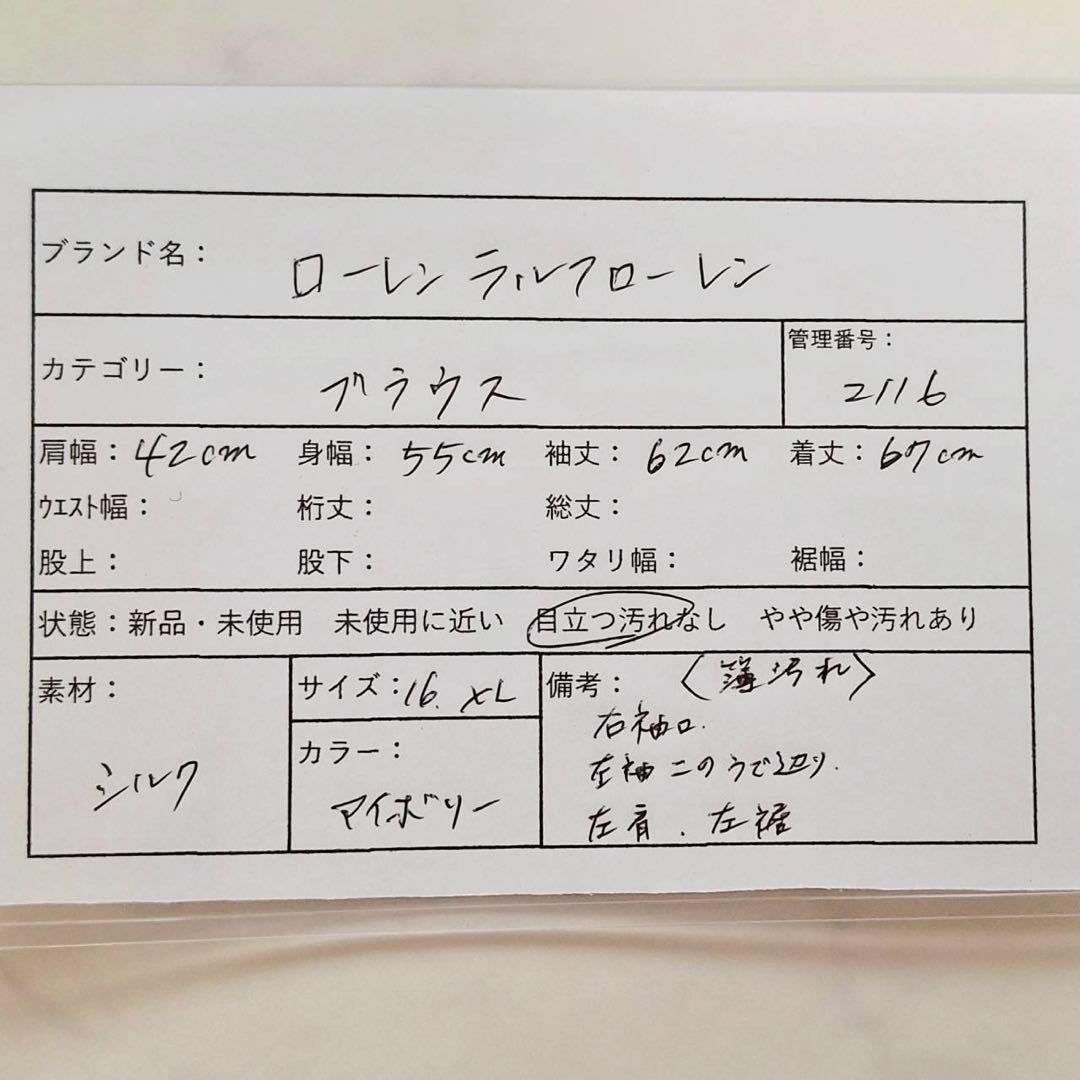 ブランド名： ローレン ラルフローレン
カテゴリー： ブラウス
管理番号：
2116
肩幅：42cm 身幅：55cm 袖丈：62cm 着丈：67cm
ウエスト幅： 裄丈： 総丈：
股上： 股下： ワタリ幅： 裾幅：
状態：新品・未使用 未使用に近い 目立つ汚れなし やや傷や汚れあり
素材：
シルク
サイズ：16. XL
カラー：
アイボリー
備考： 〈薄汚れ〉
右袖口.
左袖 二のうで辺り.
左肩. 左裾